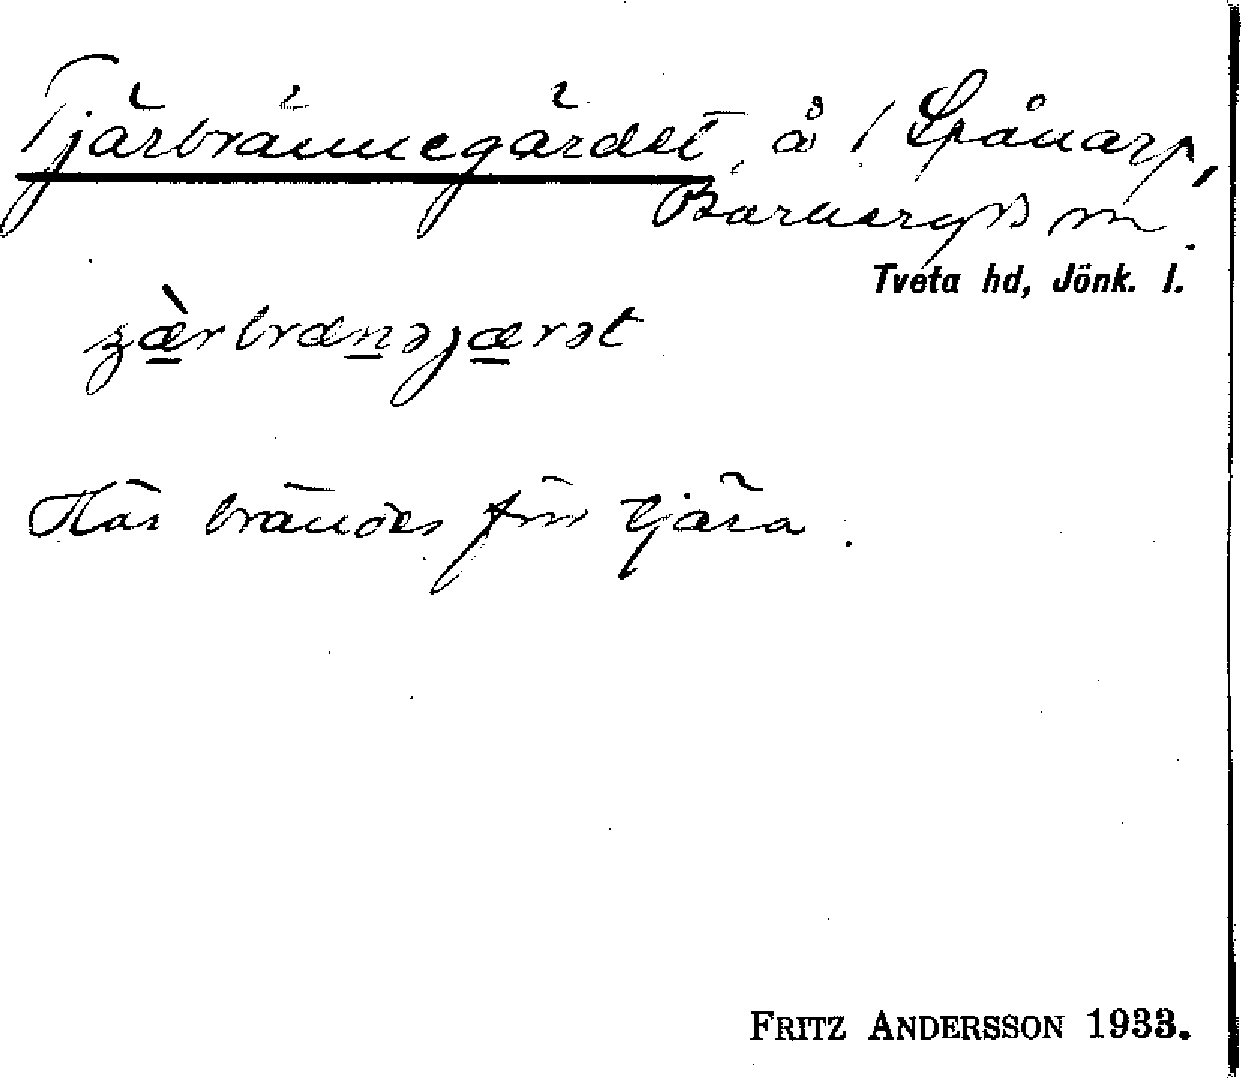 Tjärbrännegärdet, å i Spånarp,
Barnarps sn.
Tveta hd, Jönk. l.
Här brändes förr tjära.
FRITZ ANDERSSON 1933.